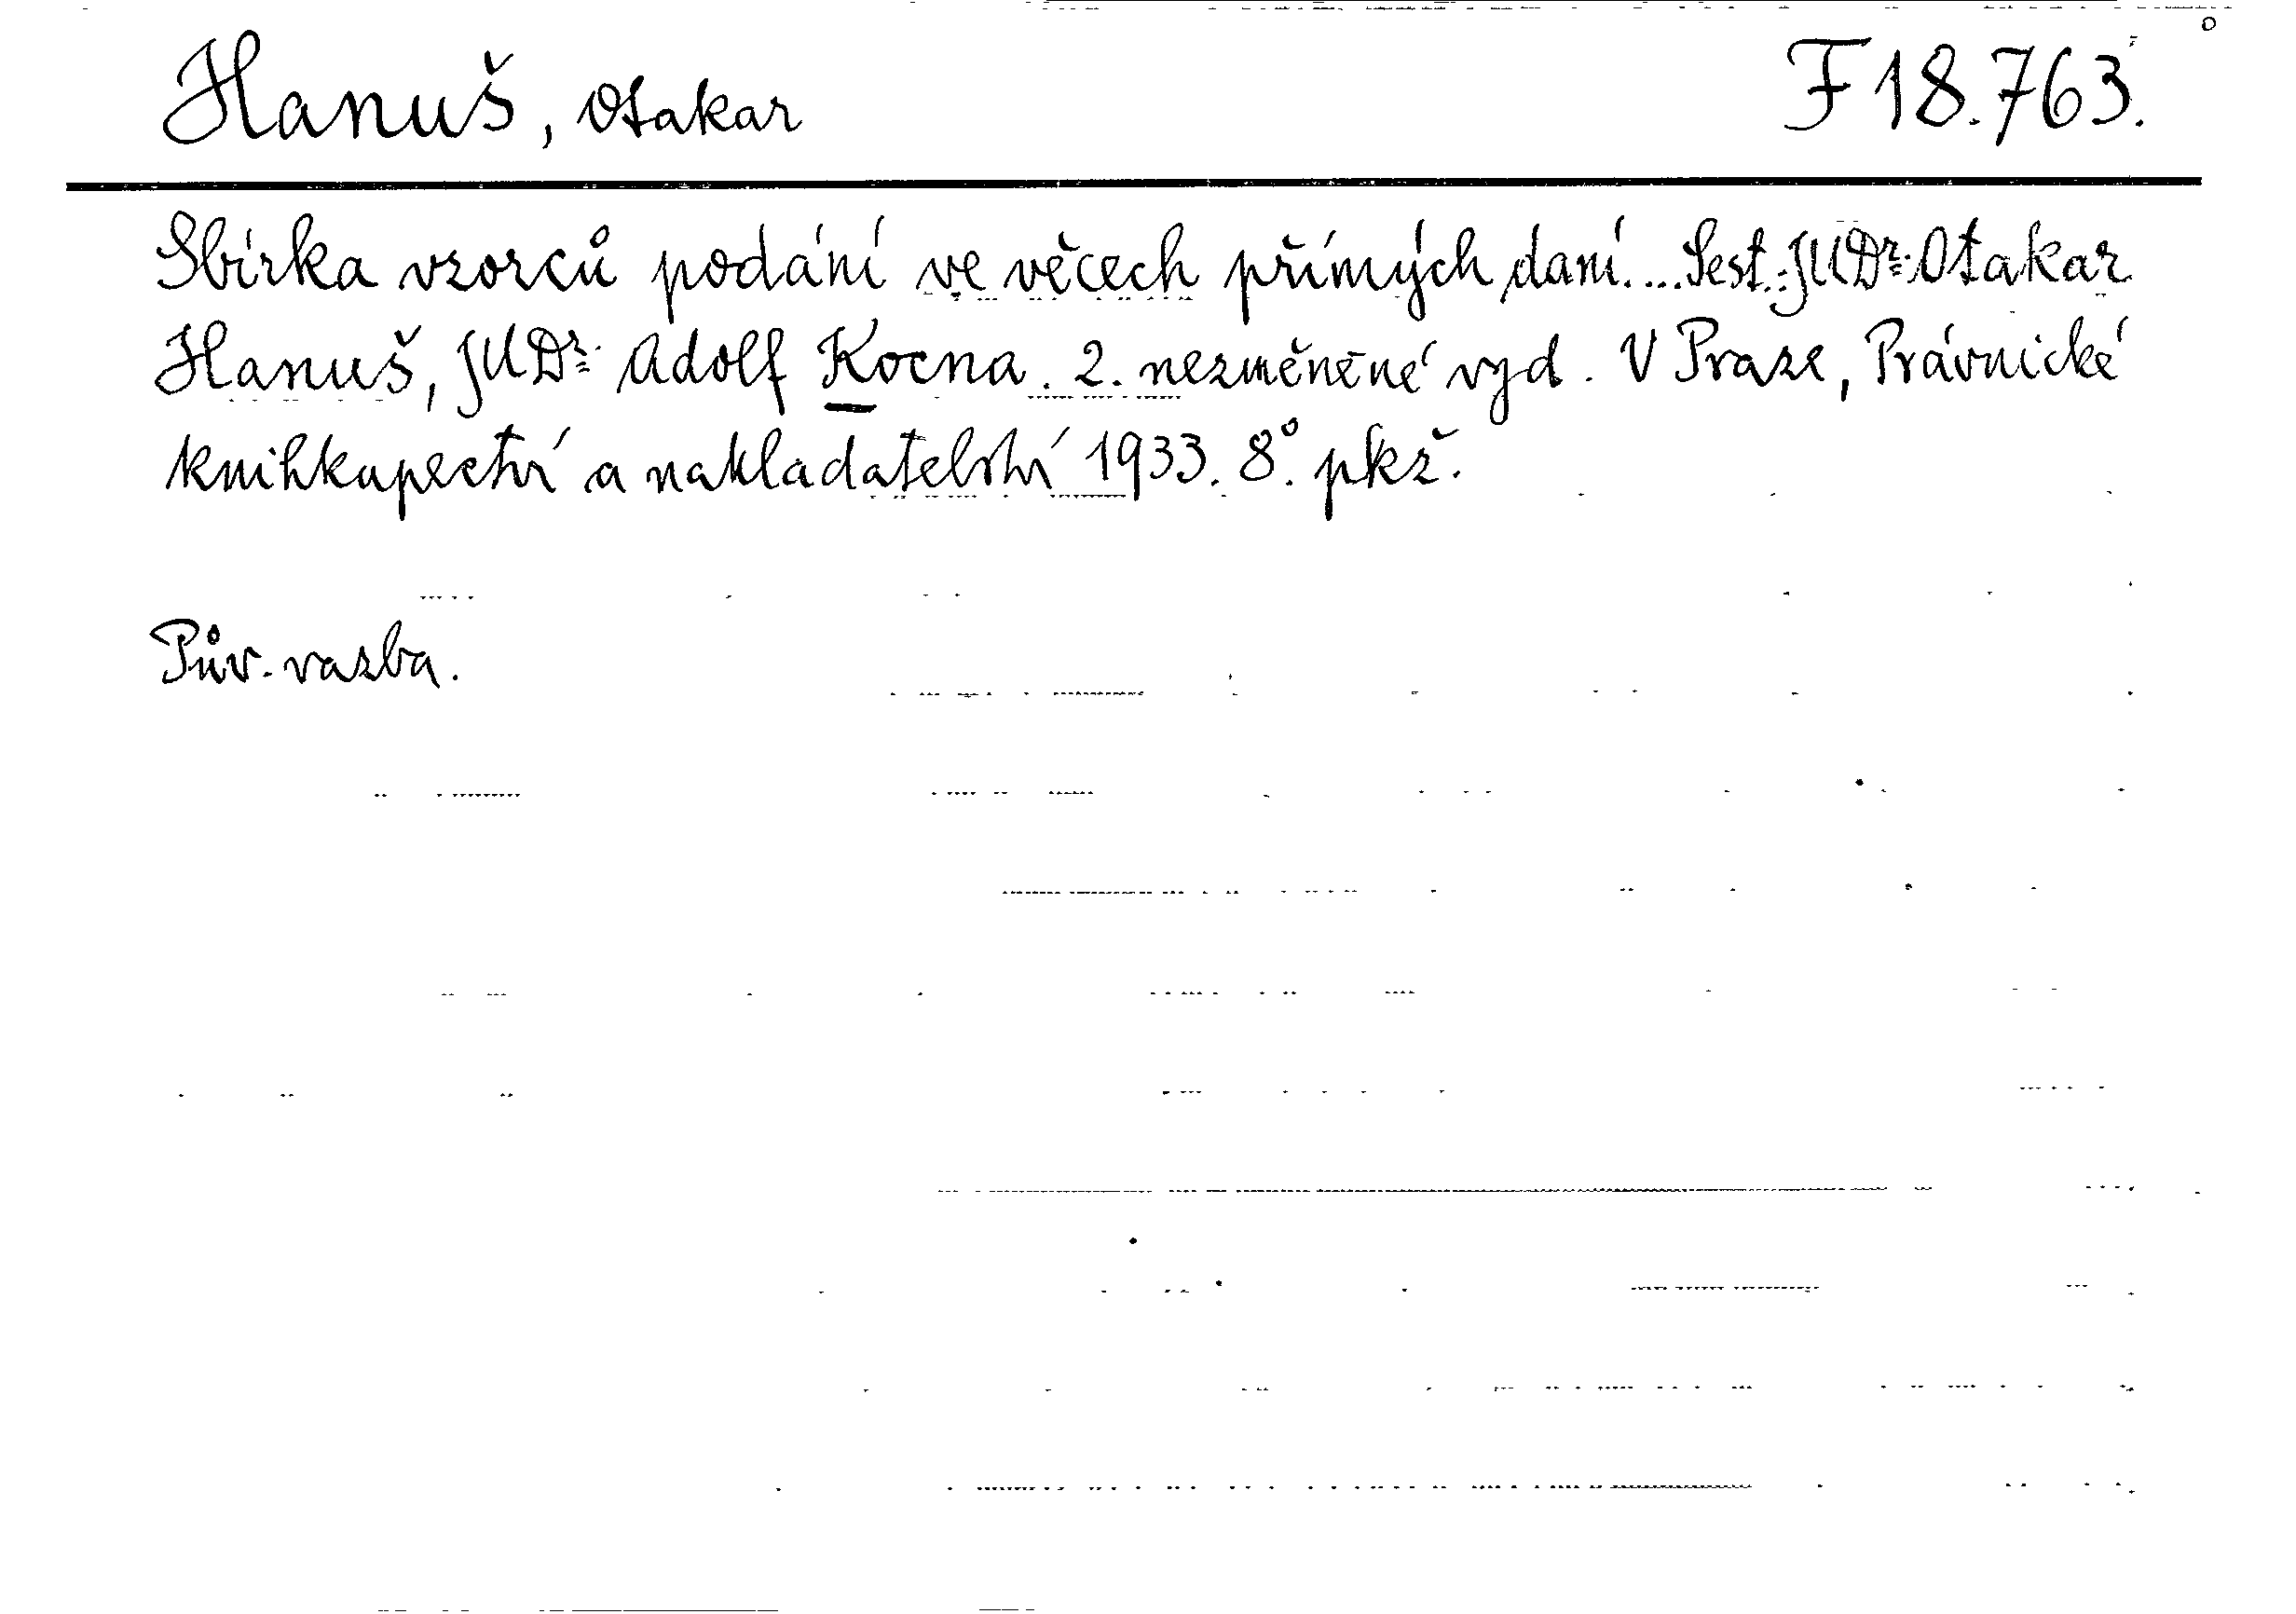 Hanuš, Otakar F 18.763.
Sbírka vzorců podání ve věcech přímých daní.... Sest.: JUDr. Otakar
Hanuš, JUDr. Adolf Kocna. 2. nezměněné vyd. V Praze, Právnické
knihkupectví a nakladatelství 1933. 8°. pkž.
Pův. vazba.